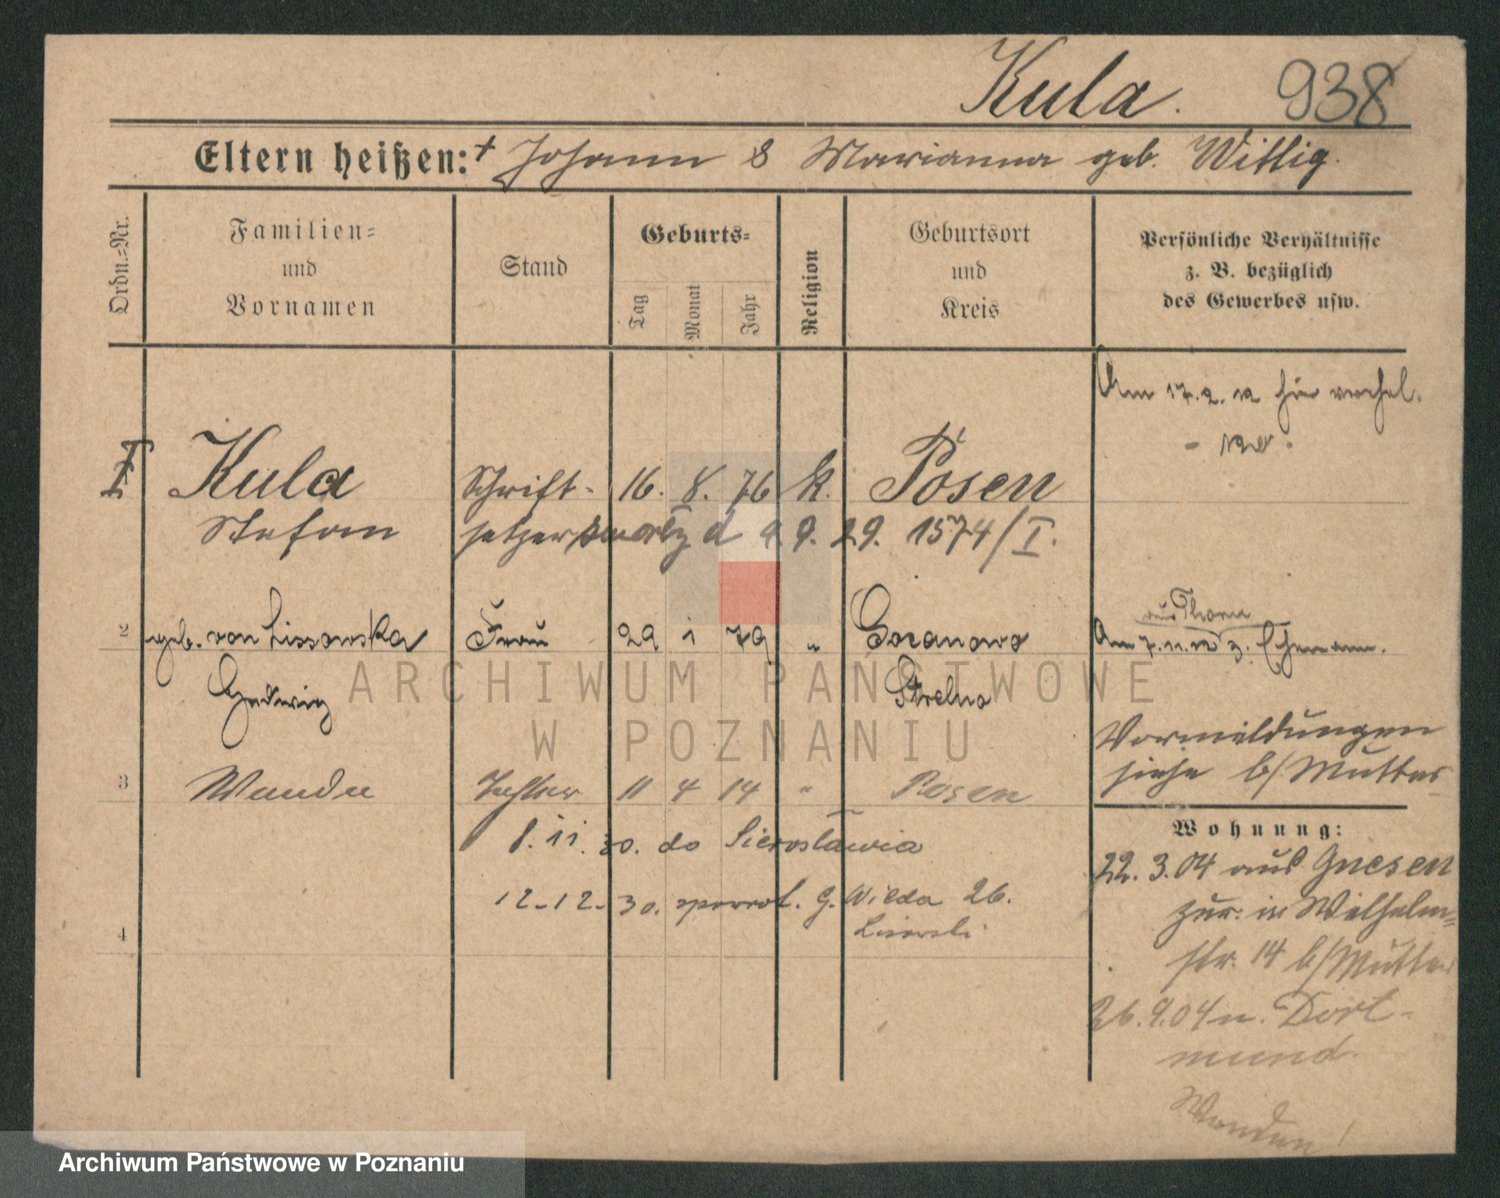 Kula. 938
Eltern heißen: + Johann & Marianna geb. Wittig.
Ordn.-Nr.
Familien=
und
Vornamen
Stand
Geburts=
Tag
Monat
Jahr
Religion
Geburtsort
und
Kreis
Persönliche Verhältnisse
z. B. bezüglich
des Gewerbes usw.
Am 17.2.12 hier verehel.
Kula Schrift- 16. 8. 76 k. Posen
Stefan setzer zmarły d 9.9.29. 1574/I.
2 geb. von Lissowska Frau 29 1 79 " Gozanowo
aus Thorn
Am 7.11.12 z. Ehemann.
Hedwig Strelno
Vormeldungen
siehe b/Mutter
3 Wanda Tochter 11 4 14 " Posen
8.11.30. do Sierosławia
12-12-30. powrót. G. Wilda 26.
Lisowski
4
Wohnung:
22.3.04 aus Gnesen
zur. in Wilhelm=
str. 14 b/Mutter
26.9.04 n. Dort-
mund.
Wenden!
ARCHIWUM PAŃSTWOWE
W POZNANIU
Archiwum Państwowe w Poznaniu